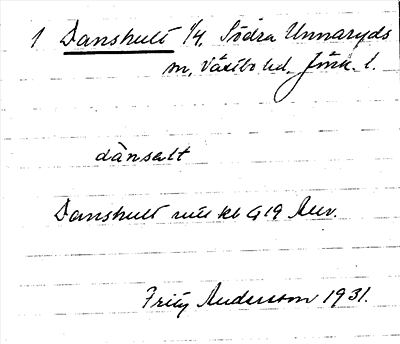 1 Danshult 1/4, Södra Unnaryds
sn, Västbo hd, Jönk. l.
dànsalt
Danshult mtl kb G 19 Anv.
Fritz Andersson 1931.